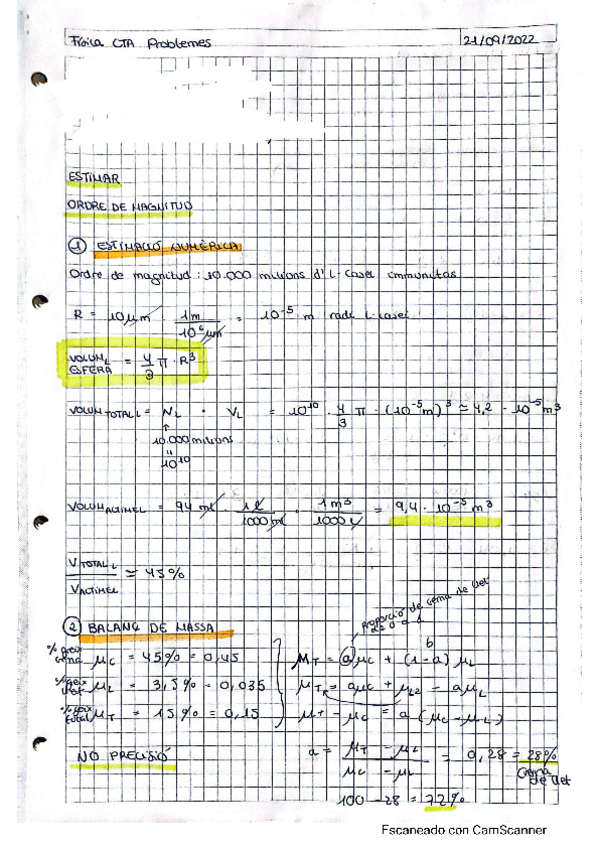 Física CTA Problemes 21/09/2022
ESTIMAR
ORDRE DE MAGNITUD
① ESTIMACIÓ NUMÈRICA
Ordre de magnitud : 10.000 milions d'L-Casei immunitas
R = 10 μm · 1m / 10⁶ μm = 10⁻⁵ m radi L-casei
VOLUM ESFERA = 4/3 π · R³
VOLUM TOTAL L = N_L · V_L = 10¹⁰ · 4/3 π · (10⁻⁵m)³ ≃ 4,2 · 10⁻⁵ m³
↑
10.000 milions
"
10¹⁰
VOLUM ACTIMEL = 94 ml · 1l / 1000 ml · 1m³ / 1000 l = 9,4 · 10⁻⁵ m³
V TOTAL L / V ACTIMEL ≃ 45%
② BALANÇ DE MASSA
Proporció de crema de llet
% greix crema μc = 45% = 0,45
μT = a μc + (1-a) μL
b
% greix llet μL = 3,5% = 0,035
% greix total μT = 15% = 0,15
μT - μL = a (μc - μL)
NO PRECISIÓ
a = μT - μL / μc - μL = 0,28 = 28%
Crema de llet
100 - 28 = 72%
Escaneado con CamScanner